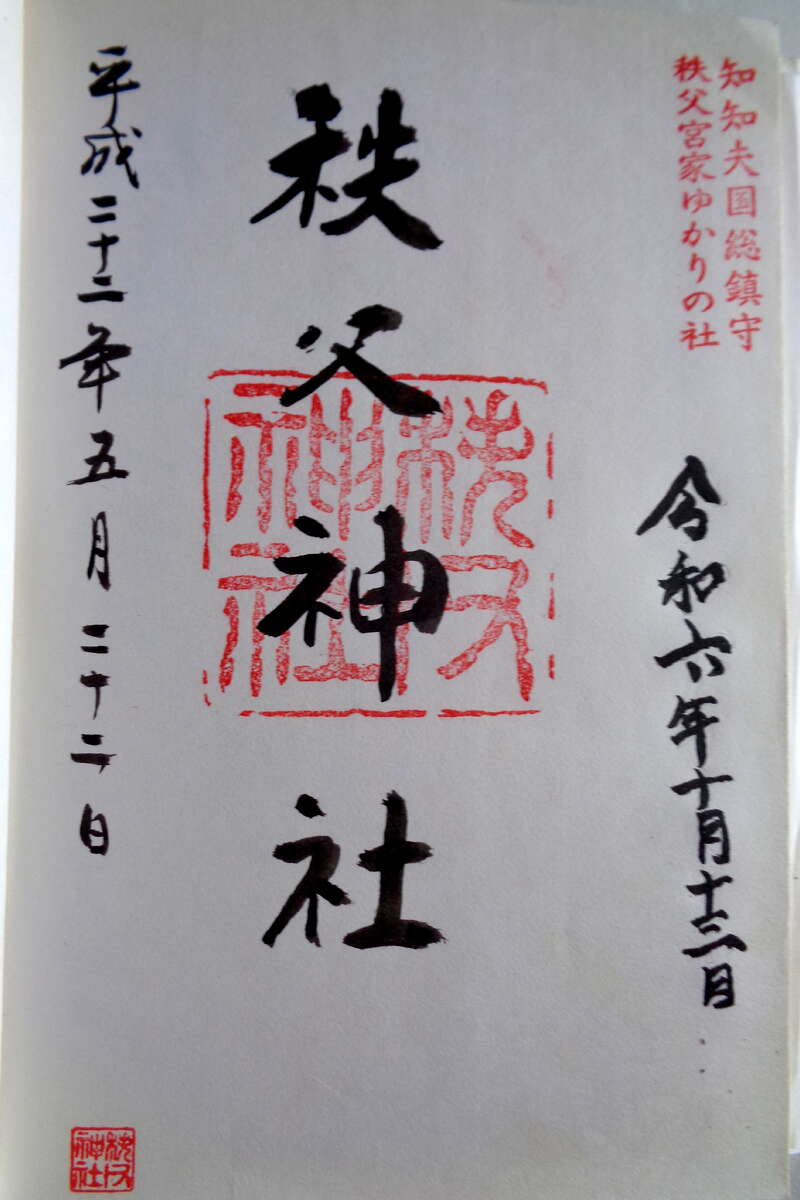 知知夫国総鎮守
秩父宮家ゆかりの社
令和六年十月十三日
秩父神社
秩父神社
平成二十二年五月二十二日
秩父神社